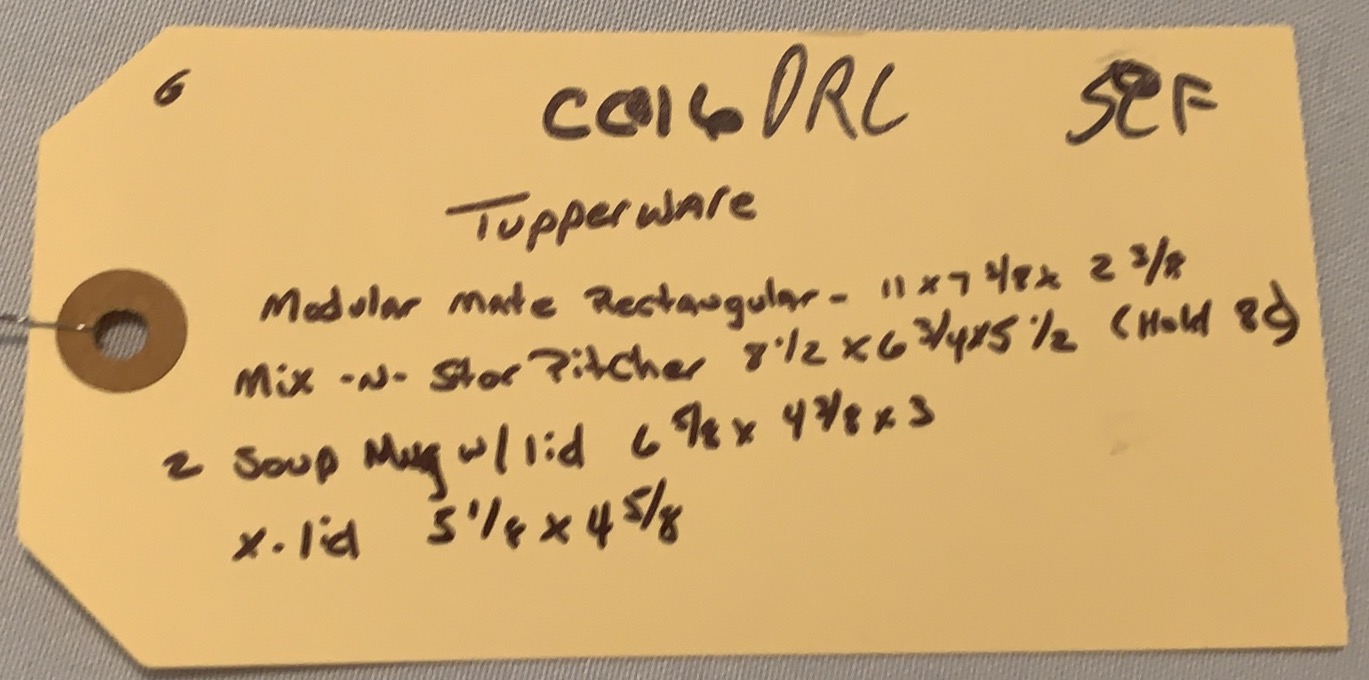 6 CC016 DRC SCF
Tupperware
Modular mate Rectangular - 11 x 7 3/8 x 2 3/8
Mix -N- Stor Pitcher 8 1/2 x 6 3/4 x 5 1/2 (Hold 8c)
2 Soup Mug w/ lid 6 5/8 x 4 3/8 x 3
x. lid 5 1/8 x 4 5/8